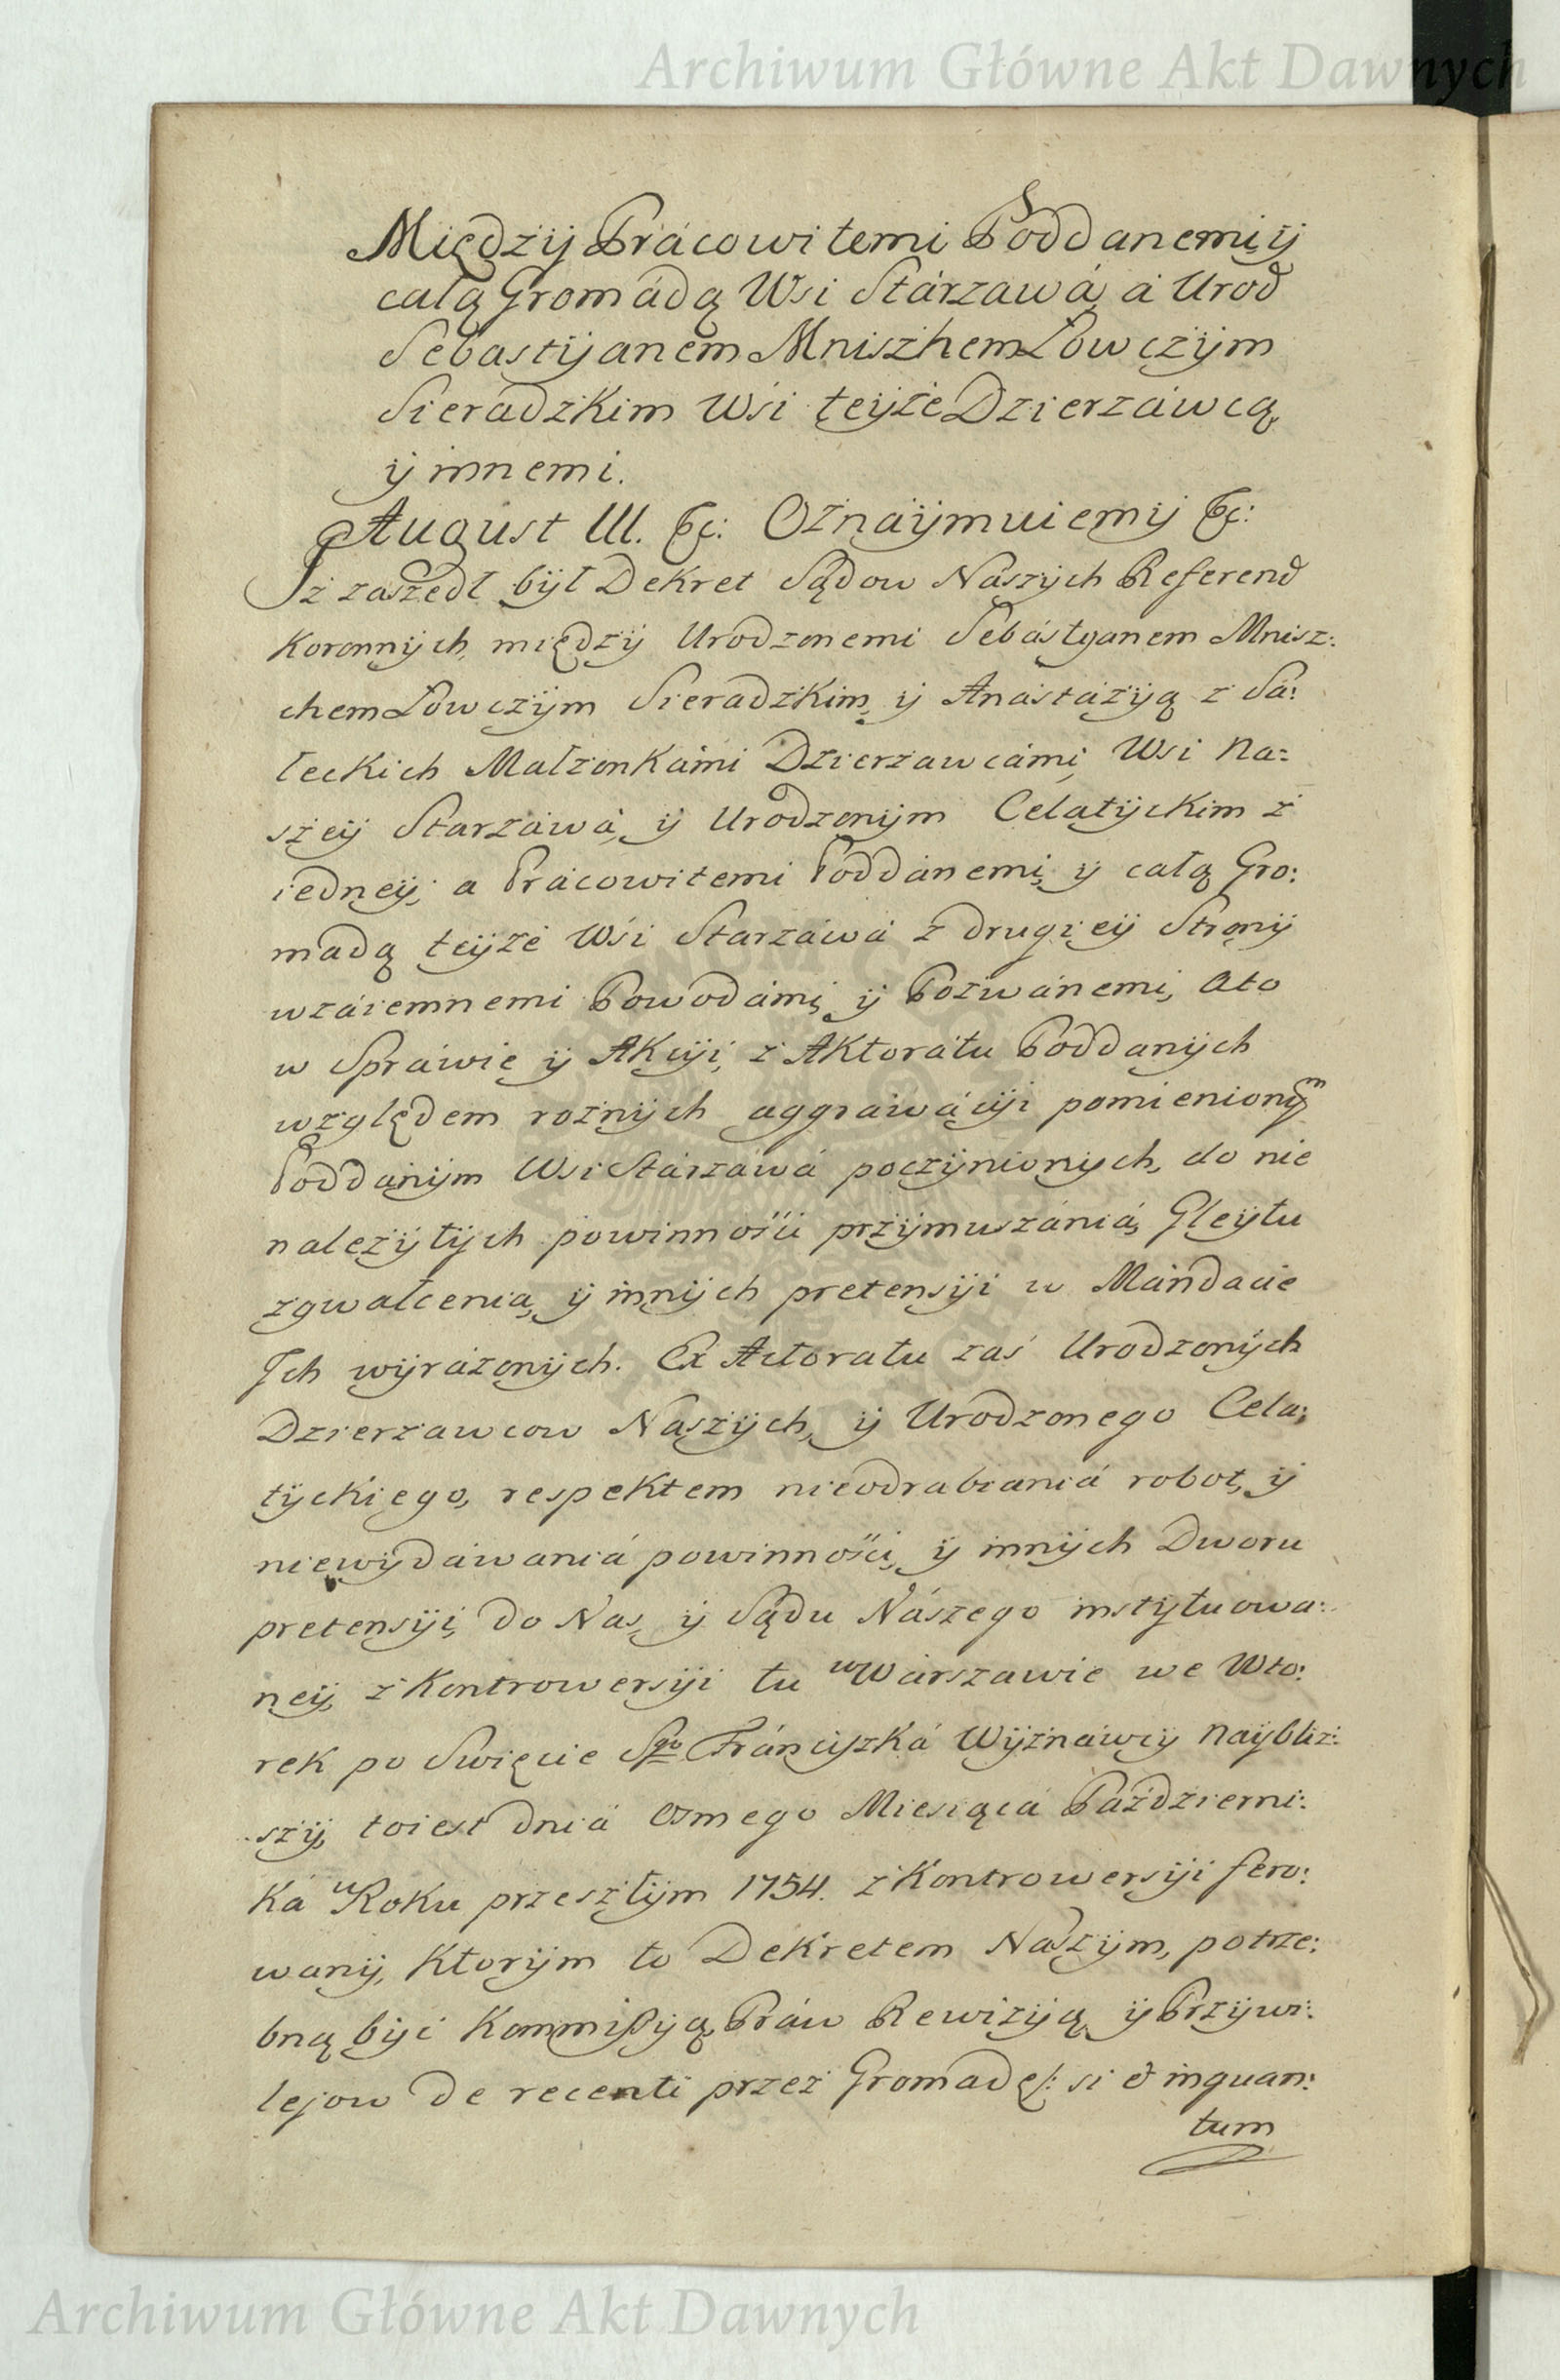 Archiwum Główne Akt Dawnych
Między Prácowitemi Poddanemi, ÿ
całą Gromádą Wsi Stárzawá, á Urod
Sebastÿanem Mniszhem Łowczÿm
Sieradzkim Wśi teÿże Dzierzáwcą,
ÿ innemi.
August III. &c: Oznaÿmuiemÿ &c:
Iż zaszedł bÿł Dekret Sądow Nászÿch Referend
Koronnÿch, międzÿ Urodzonemi Sebástyanem Mnisz:
chem Łowczÿm Sieradzkim, ÿ Anástázÿą z Sá:
łeckich Małżonkámi Dzierzawcámi, Wsi Na:
szeÿ Starzáwá, ÿ Urodzonÿm Celatÿckim z
iedneÿ; a Prácowitemi Poddánemi, y całą Gro:
madą teÿże Wśi Starzáwá z drugieÿ Stronÿ
wzáiemnemi Powodámi, ÿ Pozwánemi, Ato
w Spráwie ÿ Akcÿi, z Aktorátu Poddanÿch
względem rożnÿch aggrawácÿi pomienionÿm
Poddanÿm Wsi Stárzáwá poczÿnionÿch, do nie
należÿtÿch powinności przÿmuszániá, Gleÿtu
zgwałcenia, ÿ innÿch pretensÿi w Mándacie
Ich wÿrázonÿch. Ex Actoratu zaś Urodzonÿch
Dzierzawcow Naszÿch, ÿ Urodzonego Cela:
tÿckiego, respektem nieodrabianiá robot, ÿ
niewÿdáwaniá powinności, ÿ innÿch Dworu
pretensÿi, do Nas, ÿ Sądu Nászego instytuowa:
neÿ, z Kontrowersÿi tu w Wárszawie we Wto:
rek po Swięcie Sgo Fránciszká Wÿznáwcÿ Naÿbliż:
szÿ, toiest dniá Osmego Miesiącá Październi:
ká w Roku przeszłÿm 1754. z Kontrowersÿi fero:
wanÿ, Ktorÿm to Dekretem Naszÿm, potrze:
bną bÿć Kommißÿą, Práw Rewizÿą, ÿ Przÿwi:
lejow de recenti przez Gromadę /: si et inquan:
tum
Archiwum Główne Akt Dawnych